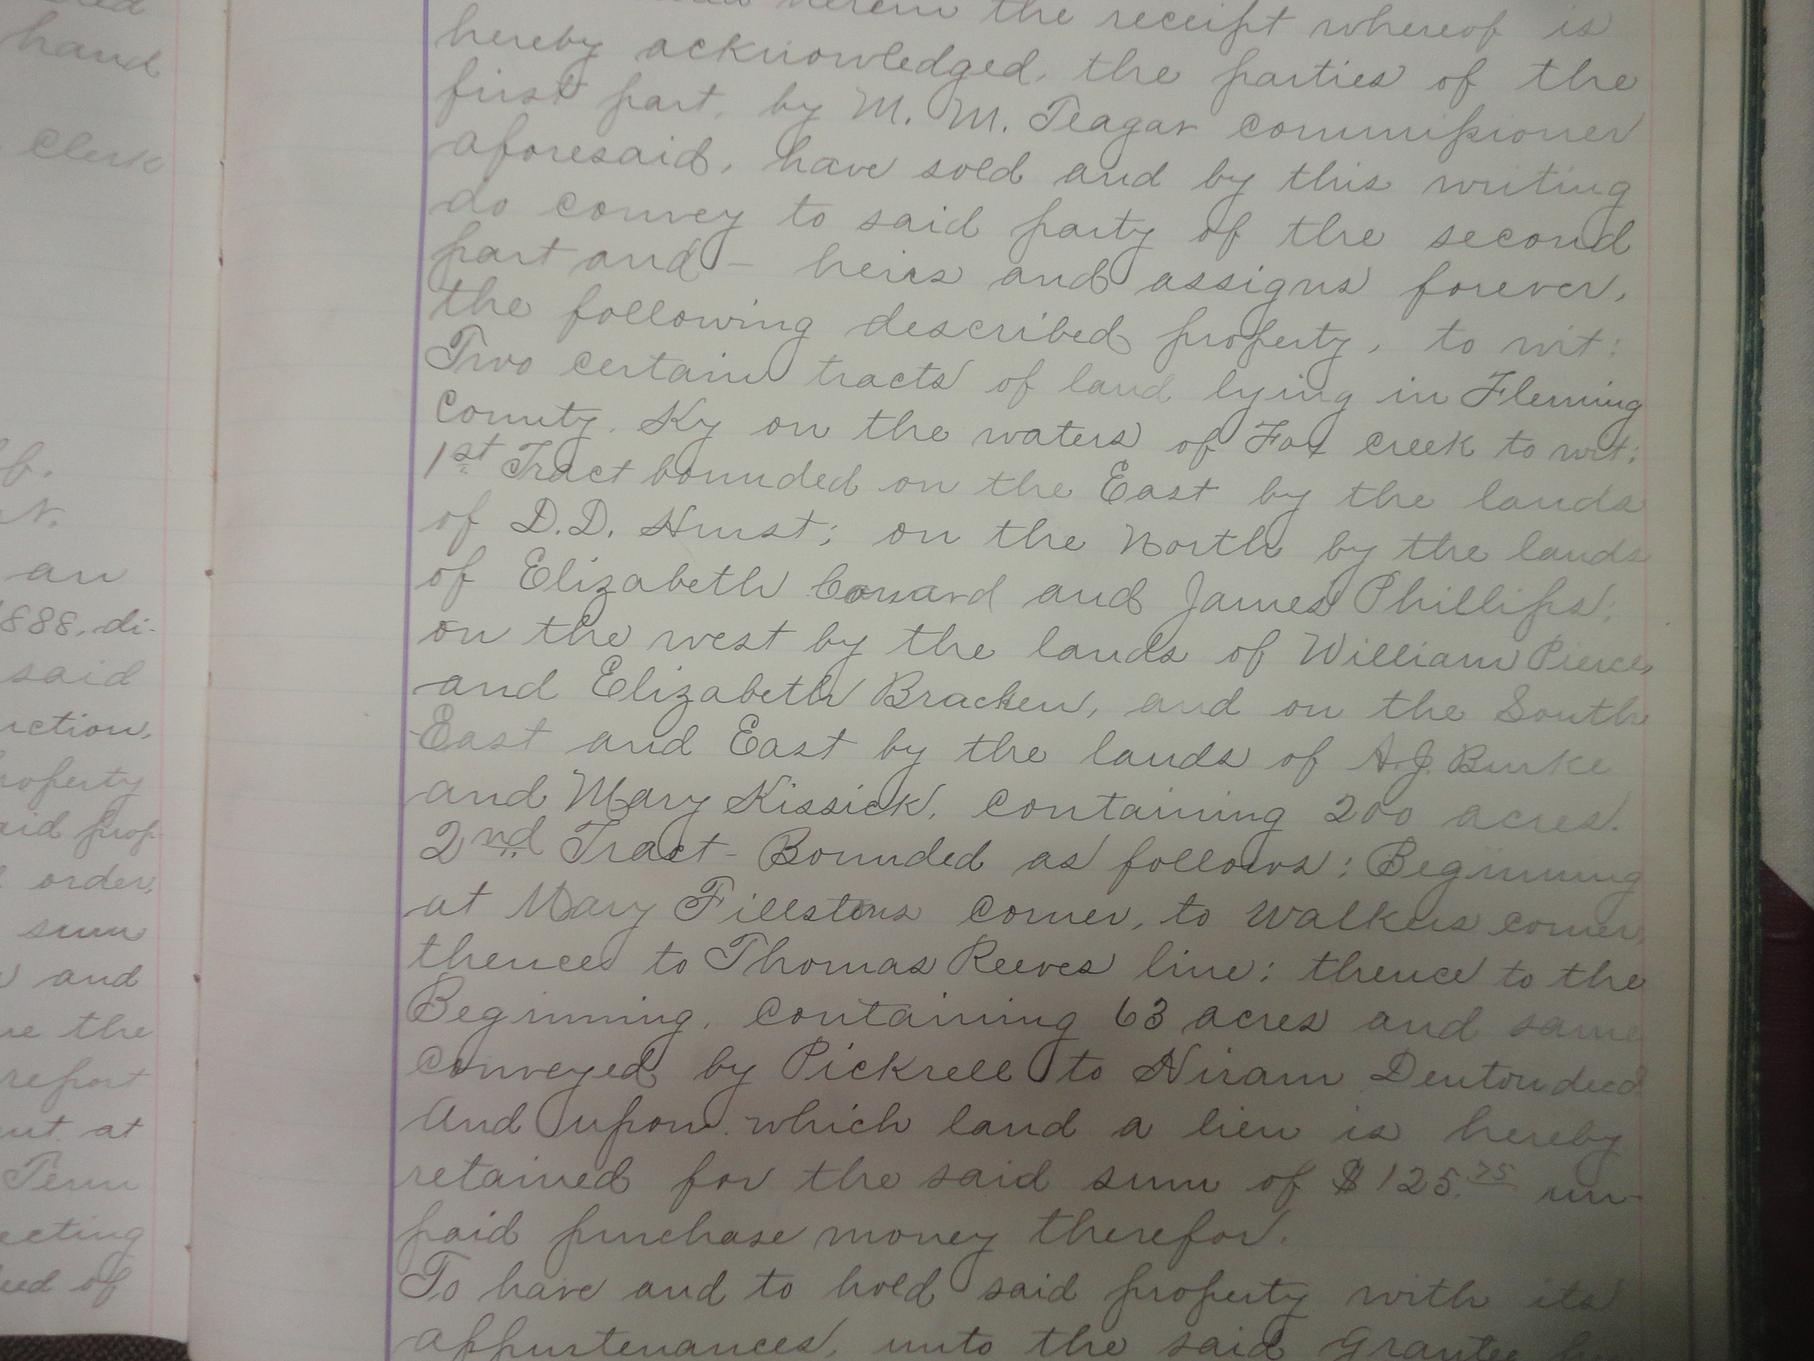 hand
clerk
an
1888, di-
said
property
said prop-
order,
sum
and
the
report
at
Term
of
herein the receipt whereof is
hereby acknowledged, the parties of the
first part, by M. M. Teagar commissioner
aforesaid, have sold and by this writing
do convey to said party of the second
part and - heirs and assigns forever,
the following described property, to wit:
Two certain tracts of land lying in Fleming
County, Ky on the waters of Fox creek to wit:
1st Tract bounded on the East by the lands
of D.D. Hurst; on the North by the lands
of Elizabeth and James Phillips;
on the west by the lands of William Pierce,
and Elizabeth Bracken, and on the South
East and East by the lands of A.J. Burke
and Mary Kissick, containing 200 acres.
2nd Tract - Bounded as follows: Beginning
at Mary corner, to Walkers corner,
thence to Thomas Reeves line; thence to the
Beginning, containing 63 acres and same
conveyed by Pickrell to Hiram Denton deed
And upon which land a lien is hereby
retained for the said sum of $125.75 un-
paid purchase money therefor.
To have and to hold said property with its
appurtenances, unto the said Grantee